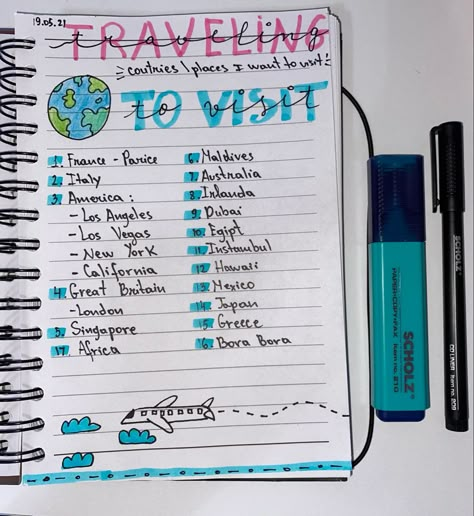 19.05.21
TRAVELING
traveling
countries \ places I want to visit!
TO VISIT
to visit
1. France - Parice
2. Italy
3. America :
- Los Angeles
- Los Vegas
- New York
- California
4. Great Britain
- London
5. Singapore
17. Africa
6. Maldives
7. Australia
8. Irlanda
9. Dubai
10. Egipt
11. Instambul
12. Hawaii
13. Mexico
14. Japan
15. Greece
16. Bora Bora
SCHOLZ
PAPER•COPY•FAX
Item no. 210
SCHOLZ
CD LINER Item no. 209